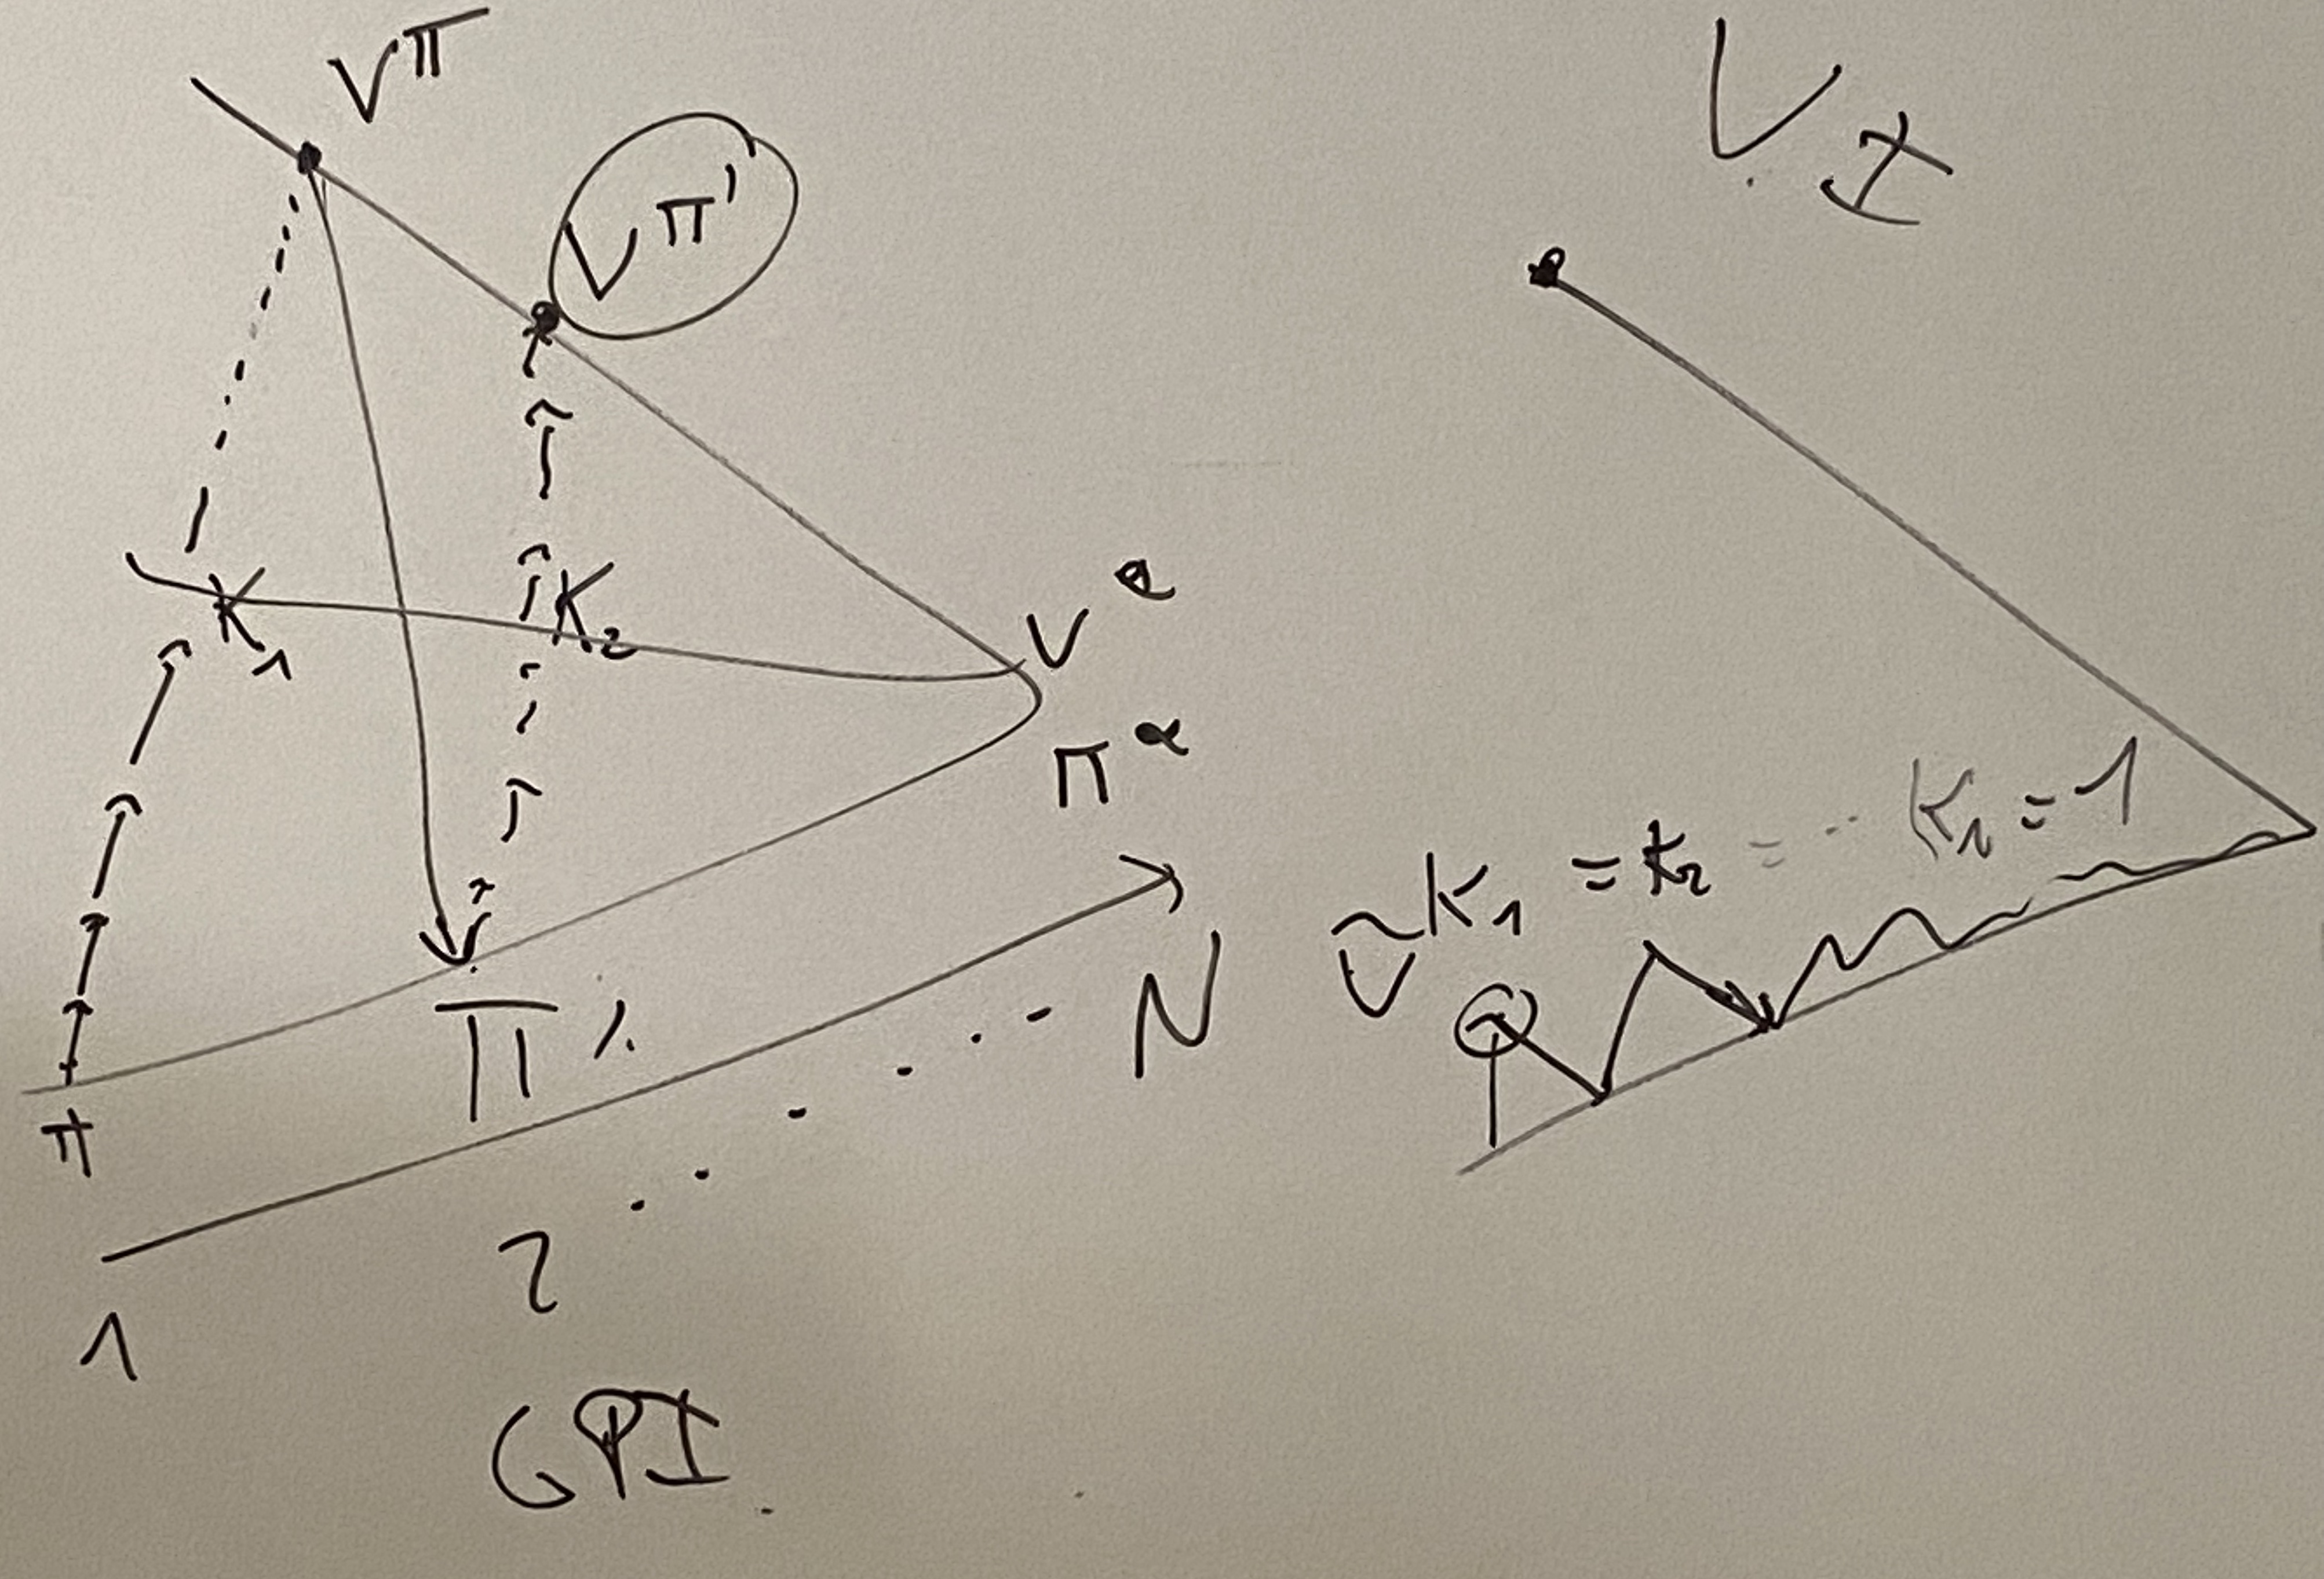 V^π
V^π'
K₁
K₂
V
π
π
π'
1
2
N
GPI
VI
Ṽ K₁ = K₂ = ... Kₙ = 1